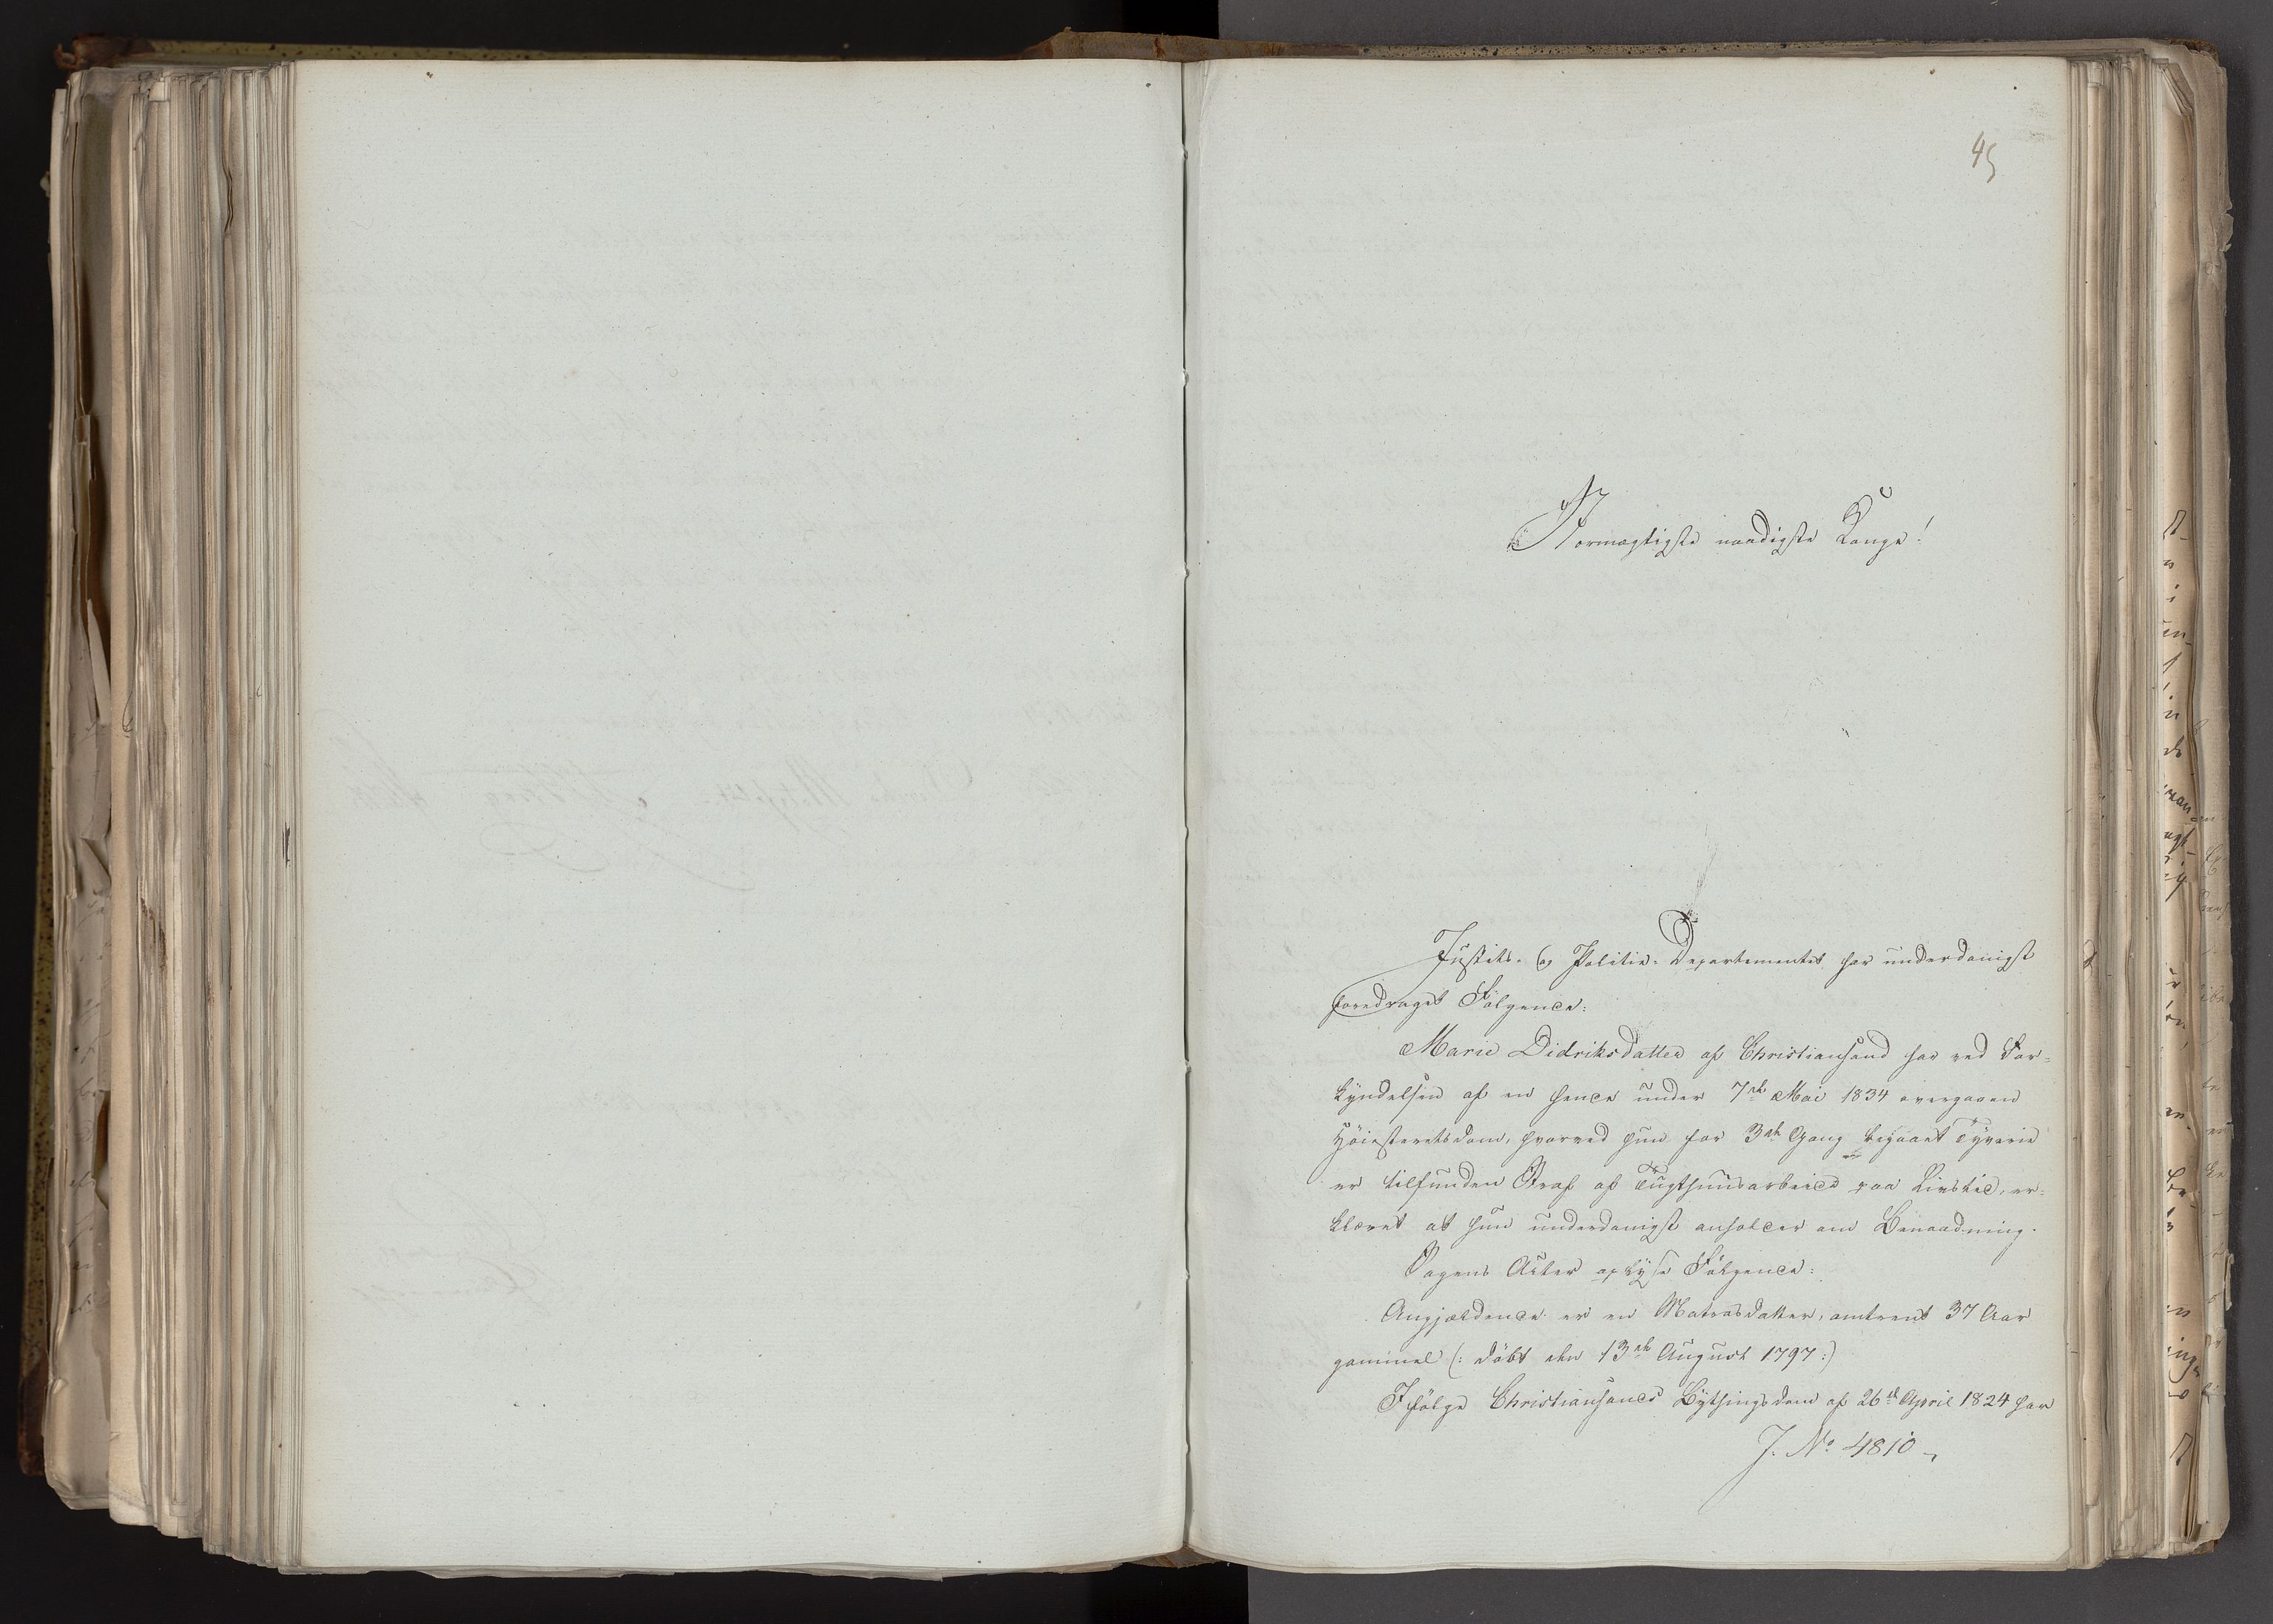 45
Stormægtigste naadigste Konge!
Justits- og Politie-Departementet har underdanigst
foredraget Følgende:
Marie Didriksdatter af Christiansand har ved For-
kyndelsen af en hende under 7de Mai 1834 overgaaen
Høiesteretsdom, hvorved hun for 3die Gang begaaet Tyverie
er tilfunden Straf af Tugthuusarbeide paa Livstid, er-
klæret at hun underdanigst anholder om Benaadning.
Sagens Acter oplyse Følgende:
Angjældende er en Matrosdatter, omtrent 37 Aar
gammel (: døbt den 13de August 1797:)
Ifølge Christiansands Bythingsdom af 26de April 1824 har
J. No 4810